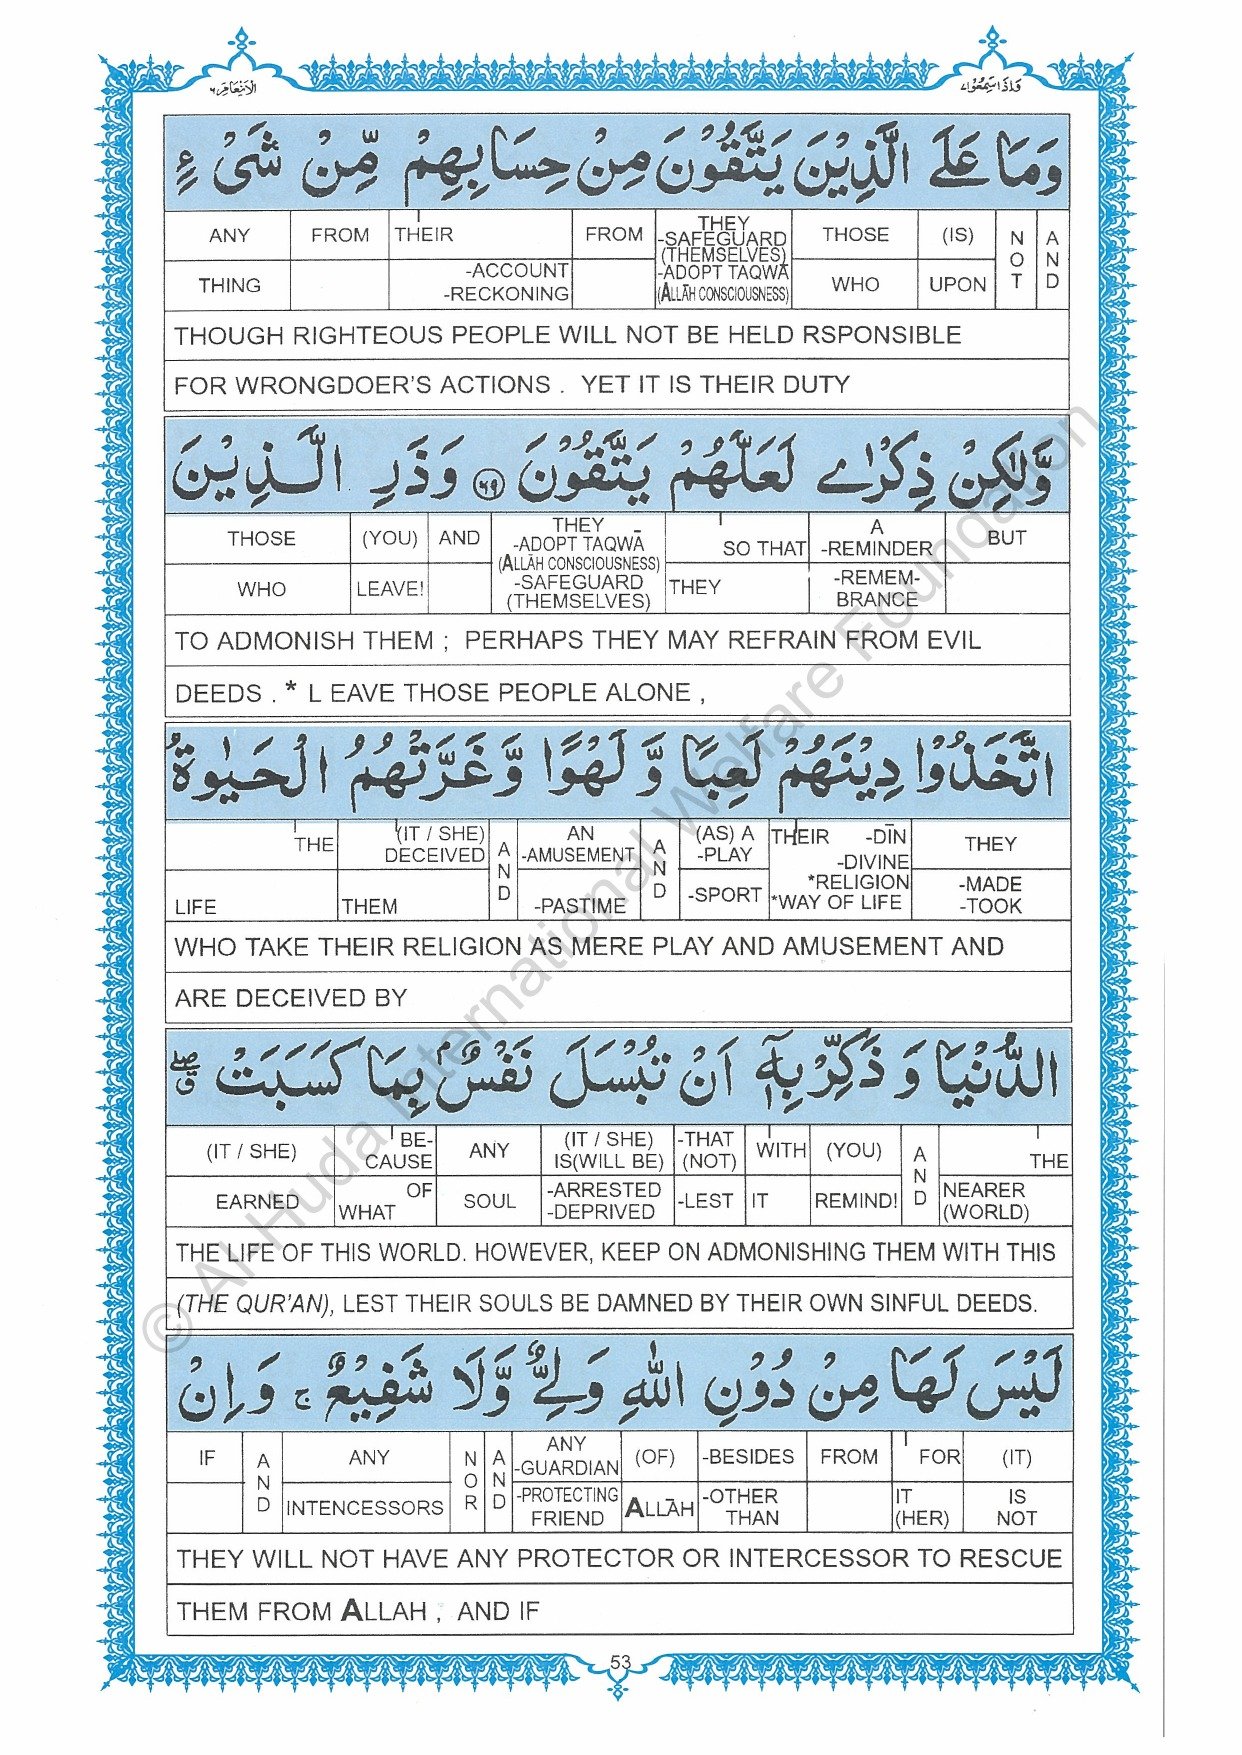 الانعام ٦
واذا سمعوا ٧
وَمَا عَلَى الَّذِيْنَ يَتَّقُوْنَ مِنْ حِسَابِهِمْ مِّنْ شَىْءٍ
ANY THING | FROM | THEIR -ACCOUNT -RECKONING | FROM | THEY -SAFEGUARD (THEMSELVES) -ADOPT TAQWĀ (ALLĀH CONSCIOUSNESS) | THOSE WHO | (IS) UPON | NOT | AND
THOUGH RIGHTEOUS PEOPLE WILL NOT BE HELD RSPONSIBLE
FOR WRONGDOER'S ACTIONS . YET IT IS THEIR DUTY
وَّلٰكِنْ ذِكْرٰى لَعَلَّهُمْ يَتَّقُوْنَ ۶۹ وَذَرِ الَّذِيْنَ
THOSE WHO | (YOU) LEAVE! | AND | THEY -ADOPT TAQWĀ (ALLĀH CONSCIOUSNESS) -SAFEGUARD (THEMSELVES) | SO THAT THEY | A -REMINDER -REMEM-BRANCE | BUT
TO ADMONISH THEM ; PERHAPS THEY MAY REFRAIN FROM EVIL
DEEDS . * L EAVE THOSE PEOPLE ALONE ,
اتَّخَذُوْا دِيْنَهُمْ لَعِبًا وَّ لَهْوًا وَّغَرَّتْهُمُ الْحَيٰوةُ
THE LIFE | (IT / SHE) DECEIVED THEM | AND | AN -AMUSEMENT -PASTIME | AND | (AS) A -PLAY -SPORT | THEIR -DĪN -DIVINE *RELIGION *WAY OF LIFE | THEY -MADE -TOOK
WHO TAKE THEIR RELIGION AS MERE PLAY AND AMUSEMENT AND
ARE DECEIVED BY
الدُّنْيَا وَ ذَكِّرْ بِهٖٓ اَنْ تُبْسَلَ نَفْسٌۢ بِمَا كَسَبَتْ
(IT / SHE) EARNED | BE-CAUSE OF WHAT | ANY SOUL | (IT / SHE) IS(WILL BE) -ARRESTED -DEPRIVED | -THAT (NOT) -LEST | WITH IT | (YOU) REMIND! | AND | THE NEARER (WORLD)
THE LIFE OF THIS WORLD. HOWEVER, KEEP ON ADMONISHING THEM WITH THIS
(THE QUR'AN), LEST THEIR SOULS BE DAMNED BY THEIR OWN SINFUL DEEDS.
لَيْسَ لَهَا مِنْ دُوْنِ اللّٰهِ وَلِىٌّ وَّلَا شَفِيْعٌ ۚ وَاِنْ
IF | AND | ANY INTENCESSORS | NOR | AND | ANY -GUARDIAN -PROTECTING FRIEND | (OF) ALLĀH | -BESIDES -OTHER THAN | FROM | FOR IT (HER) | (IT) IS NOT
THEY WILL NOT HAVE ANY PROTECTOR OR INTERCESSOR TO RESCUE
THEM FROM ALLAH , AND IF
53
© Al-Huda International Welfare Foundation